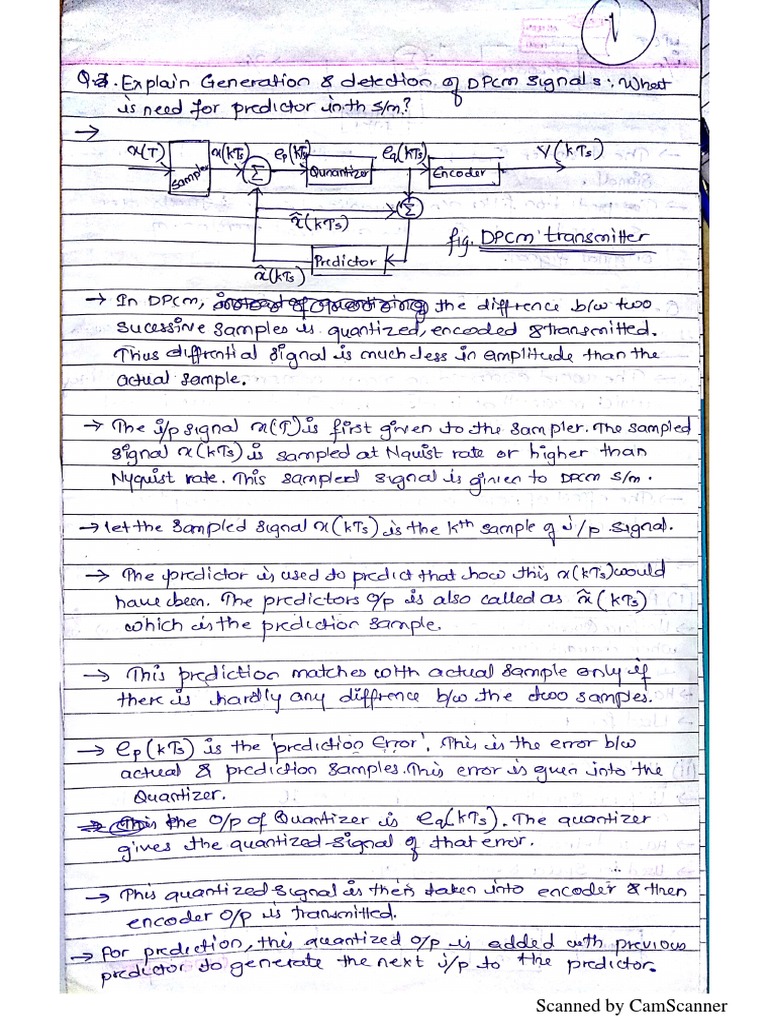 1
Q.3. Explain Generation & detection of DPCM signals. What
is need for predictor in th s/m?
→
x(T) Sampler x(kTs) Σ ep(kTs) Qunantizer eq(kTs) Encoder Y(kTs)
Σ
x̃(kTs)
fig. DPCM transmitter
Predictor
x̃(kTs)
→ In DPCM, instead of quantizing the diffrence b/w two
sucessive samples is quantized, encoded & transmitted.
Thus diffrntial signal is much less in amplitude than the
actual sample.
→ The i/p signal x(T) is first given to the sampler. The sampled
signal x(kTs) is sampled at Nquist rate or higher than
Nyquist rate. This sampled signal is given to DPCM s/m.
→ let the sampled signal x(kTs) is the kth sample of i/p signal.
→ The predictor is used to predict that how this x(kTs) would
have been. The predictors o/p is also called as x̃(kTs)
which is the prediction sample.
→ This prediction matches with actual sample only if
there is hardly any diffrence b/w the two samples.
→ ep(kTs) is the 'prediction Error'. This is the error b/w
actual & prediction samples. This error is given into the
Quantizer.
→ This the o/p of Quantizer is eq(kTs). The quantizer
gives the quantized signal of that error.
→ This quantized signal is then taken into encoder & then
encoder o/p is transmitted.
→ For prediction, this quantized o/p is added with previous
predictor to generate the next i/p to the predictor.
Scanned by CamScanner